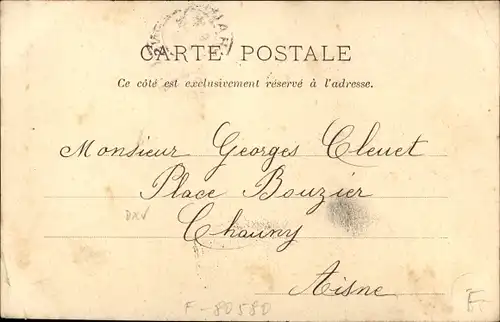 CARTE POSTALE
Ce côté est exclusivement réservé à l'adresse.
Monsieur Georges Cleuet
Place Bouzier
DXV
Chauny
Aisne
F-80580
F